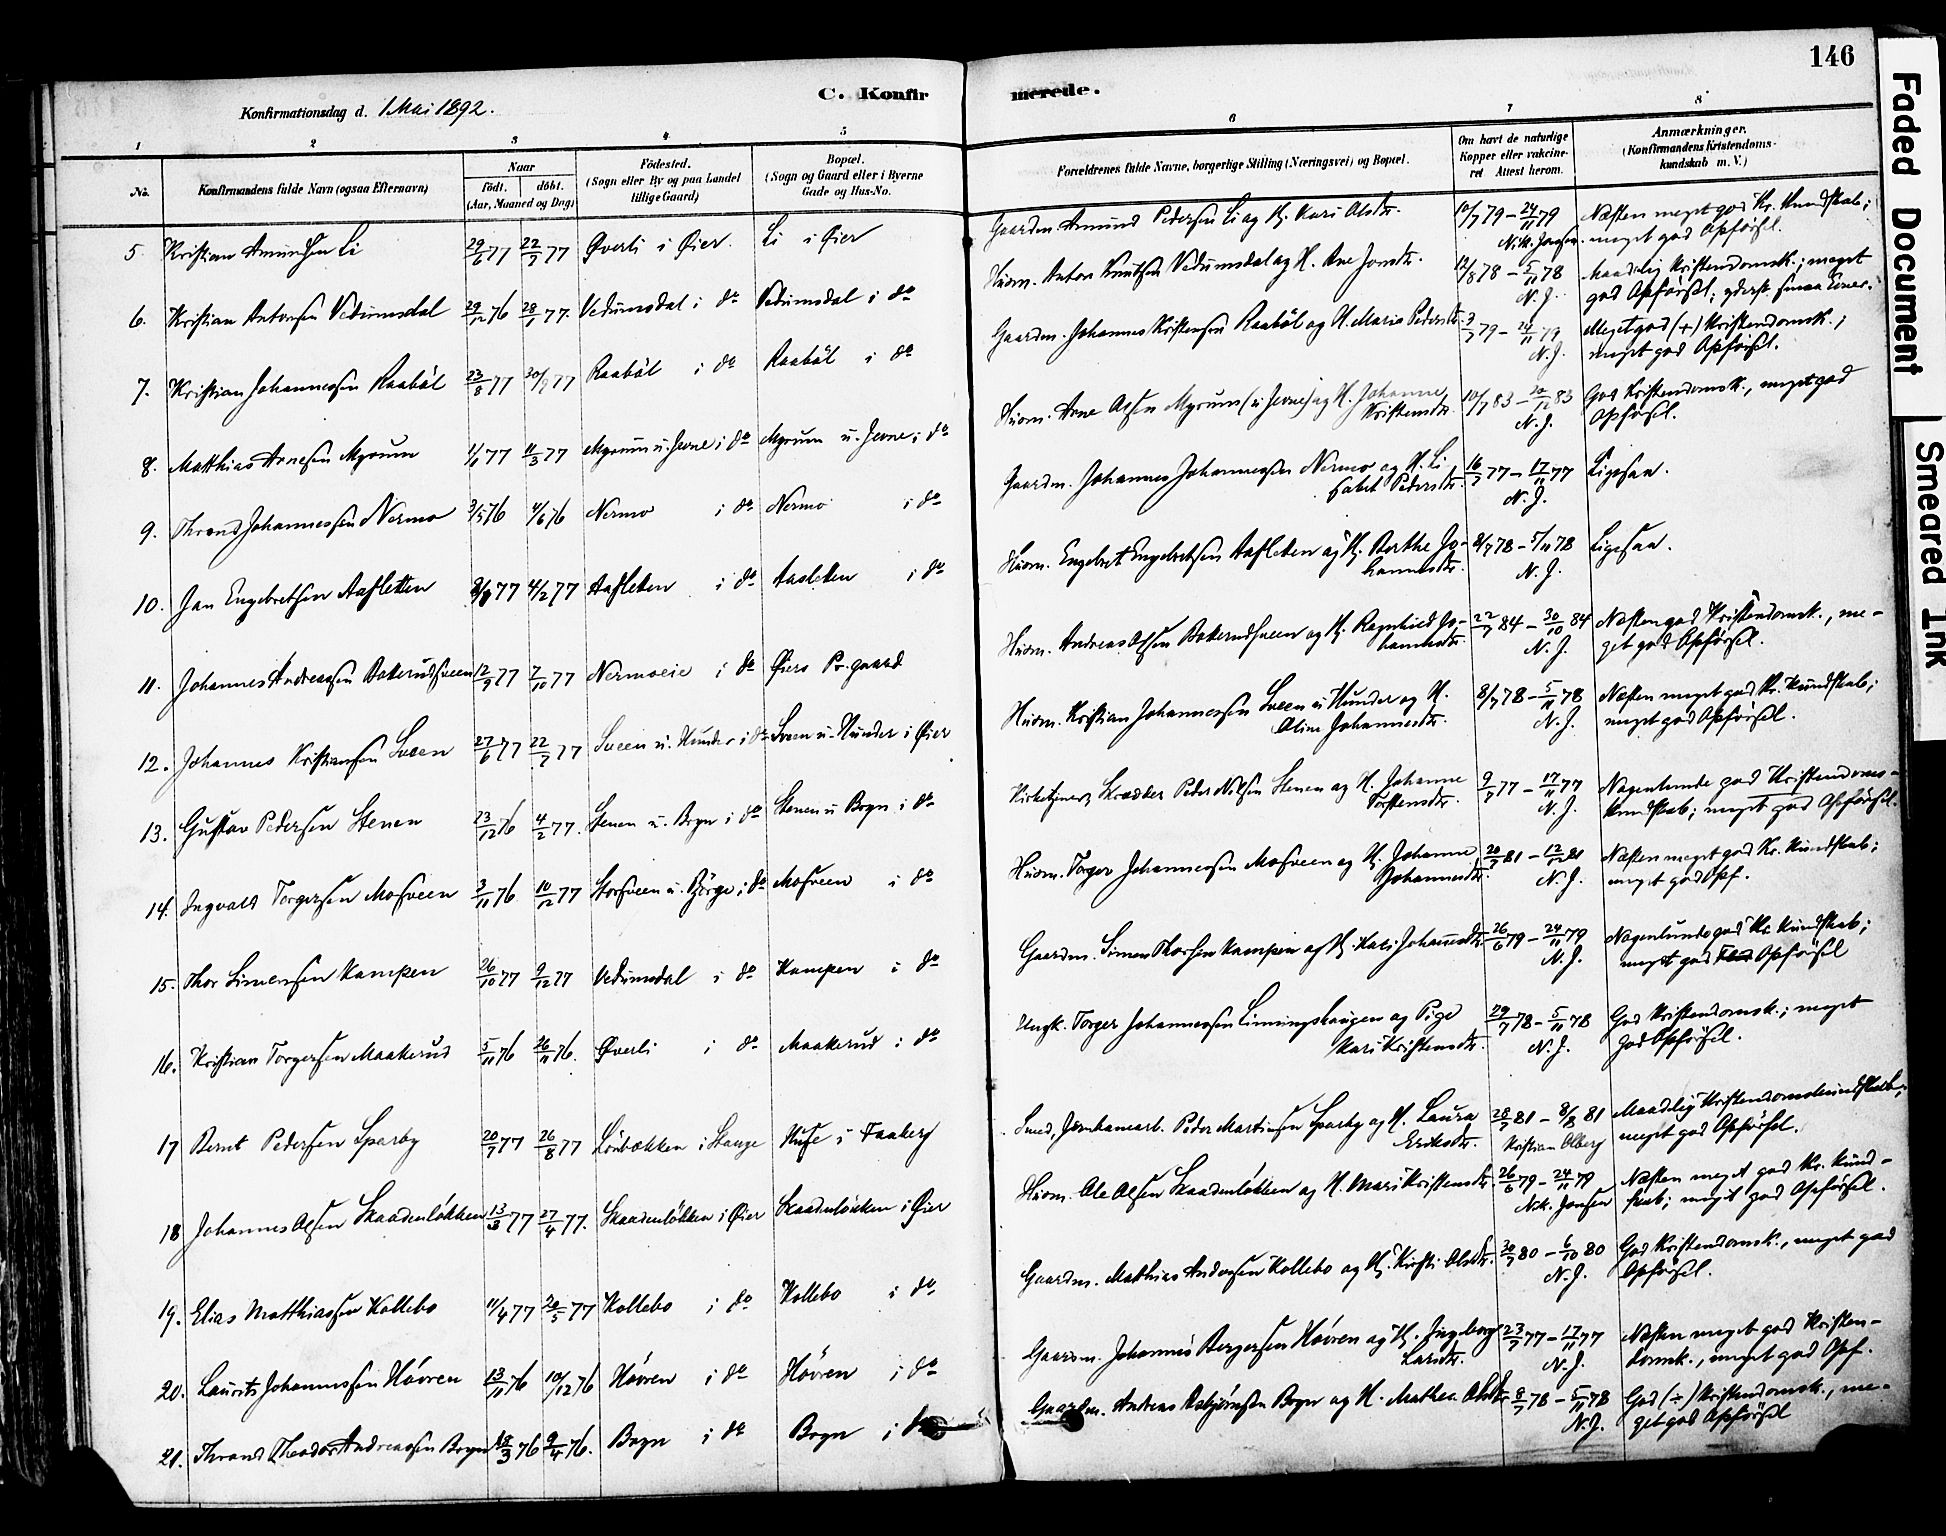 146
Faded Document
Smeared Ink
C. Konfirmerede.
Konfirmationsdag d. 1 Mai 1892.
1 2 3 4 5 6 7 8
No.
Konfirmandens fulde Navn (ogsaa Efternavn)
Naar
födt. döbt.
(Aar, Maaned og Dag)
Födested.
(Sogn eller By og paa Landet
tillige Gaard)
Bopæl.
(Sogn og Gaard eller i Byerne
Gade og Hus-No.
Forældrenes fulde Navne, borgerlige Stilling (Næringsvei) og Bopæl.
Om havt de naturlige
Kopper eller vakcine-
ret Attest herom.
Anmærkninger.
(Konfirmandens Kristendoms-
kundskab m. V.)
5 Kristian Amundsen Li 29/6 77 22/7 77 Överli i Öier. Li i Öier Gaardm. Amund Pedersen Li og H. Kari Olsdtr. 10/7 79 – 24/11 79 Næsten meget god Kr. Kundskab;
Nik. Jonsen. meget god Opförsel.
6. Kristian Antonsen Vedumsdal 29/12 76 28/1 77. Vedumsdal i do Vedumsdal i do Husm. Anton Knutsen Vedumsdal og H. Ane Jonsdtr. 12/8 78 – 5/11 78 Maadelig Kristendomsk.; meget
N. J. god Opförsel; yderst smaa Evner.
7. Kristian Johannessen Raaböl 23/8 77 30/9 77 Raaböl i do Raaböl i do Gaardm. Johannes Kristensen Raaböl og H. Marie Pedersdtr. 3/7 79 – 24/11 79 Meget god (÷) Kristendomsk.;
N. J. meget god Opförsel.
8. Matthias Arnesen Myrum 1/1 77 11/3 77 Myrum u. Jevne i do Myrum u. Jevne i do Husm. Arne Olsen Myrum (u. Jevne) og H. Johanne 10/7 83 – 20/12 83 God Kristendomsk., meget god
Kristensdtr. N. J. Opförsel.
9. Thrond Johannessen Nermo 3/5 76 4/6 76 Nermo i do Nermo i do Gaardm. Johannes Johannessen Nermo og H. Li 16/7 77 – 17/11 77 Ligesaa.
sabet Pedersdtr. N. J.
10. Jan Engebretsen Aasletten 77 4/2 77 Aasletten i do Aasletten i do Husm. Engebret Engebretsen Aasletten og H. Berthe Jo- 8/7 78 – 5/11 78 Ligesaa.
hannesdtr. N. J.
11. Johannes Andreassen Bakerudsveen 12/9 77 7/10 77 Nermoeie i do Öiers Pr.gaard Husm. Andreas Olsen Bakerudsveen og H. Ragnhild Jo- 22/7 84 – 30/10 84 Næsten god Kristendomsk., me-
hannesdtr. N. J. get god Opförsel.
12. Johannes Kristiansen Sveen 27/6 77 22/7 77 Sveen u. Hunder i do Sveen u. Hunder i Öier Husm. Kristian Johannessen Sveen u. Hunder og H. 8/7 78 – 5/11 78 Næsten meget god Kr. Kundskab;
Oline Johannesdtr. N. J. meget god Opförsel.
13. Gustav Pedersen Stenen 23/12 76 4/2 77. Stenen u. Bryn i do Stenen u Bryn i do Kirketjener, Skrædder Peder Nilsen Stenen og H. Johanne 9/7 77 – 17/11 77 Nogenlunde god Kristendoms-
Torstensdtr. N. J. kundskab; meget god Opförsel.
14. Ingvald Torgersen Mosveen 3/11 76 10/12 77 Storsveen u. Björge i do Mosveen i do Husm. Torger Johannessen Mosveen og H. Johanne 20/7 81 – 12/12 81 Næsten meget god Kr. Kundskab;
Johannesdtr. N. J. meget god Opf.
15. Thor Simensen Kampen 26/10 77 9/12 77 Vedumsdal i do Kampen i do Gaardm. Simen Thorsen Kampen og H. Kari Johannesdtr. 26/6 79 – 24/11 79 Nogenlunde god Kr. Kundskab;
N. J. meget god Opförsel
16. Kristian Torgersen Maakerud 5/11 76 26/11 76. Överli i do Maakerud i do Ungk. Torger Johannessen Linningshaugen og Pige 29/7 78 – 5/11 78 God Kristendomsk.; meget
Mari Kristensdtr. N. J. god Opförsel.
17 Bernt Pedersen Sparby 20/7 77 26/8 77 Lönbækken i Stange Huse i Faaberg Smed, Jernbanearb. Peder Martinsen Sparby og H. Laura 28/7 81 – 8/8 81 Maadelig Kristendomskundskab;
Eriksdtr. Kristian Olberg meget god Opförsel.
18 Johannes Olsen Skaadenlökken 13/3 77 27/4 77. Skaadenlökken i Öier Skaadenlökken i Öier Husm. Ole Olsen Skaadenlökken og H. Mari Kristensdtr. 26/6 79 – 24/11 79 Næsten meget god Kr. Kund-
Nik. Jonsen skab; meget god Opförsel.
19. Elias Matthiassen Kollebo 11/4 77 20/5 77 Kollebo i do Kollebo i do Gaardm. Mathias Andersen Kollebo og H. Kirsti Olsdtr. 30/7 80 – 6/10 80 God Kristendomsk., meget god
N. J. Opförsel.
20. Laurits Johannessen Hövren 13/11 76 10/12 76 Hövren i do Hövren i do Gaardm. Johannes Bergersen Hövren og H. Ingeborg 23/7 77 – 17/11 77 Næsten meget god Kristen-
Larsdtr. N. J. domsk., meget god Opf.
21. Thrond Theodor Andreassen Bryn 18/3 76 9/4 76. Bryn i do Bryn i do Gaardm. Andreas Asbjörnsen Bryn og H. Mathea Olsdtr. 8/7 78 – 5/11 78 God (÷) Kristendomsk., me-
N. J. get god Opförsel